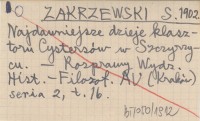 O ZAKRZEWSKI S. 1902.
Najdawniejsze dzieje klasz-
toru Cystersów w Szczyrzy-
cu. – Rozprawy Wydz.
Hist.-Filozof. AU (Kraków)
seria 2, t. 16.